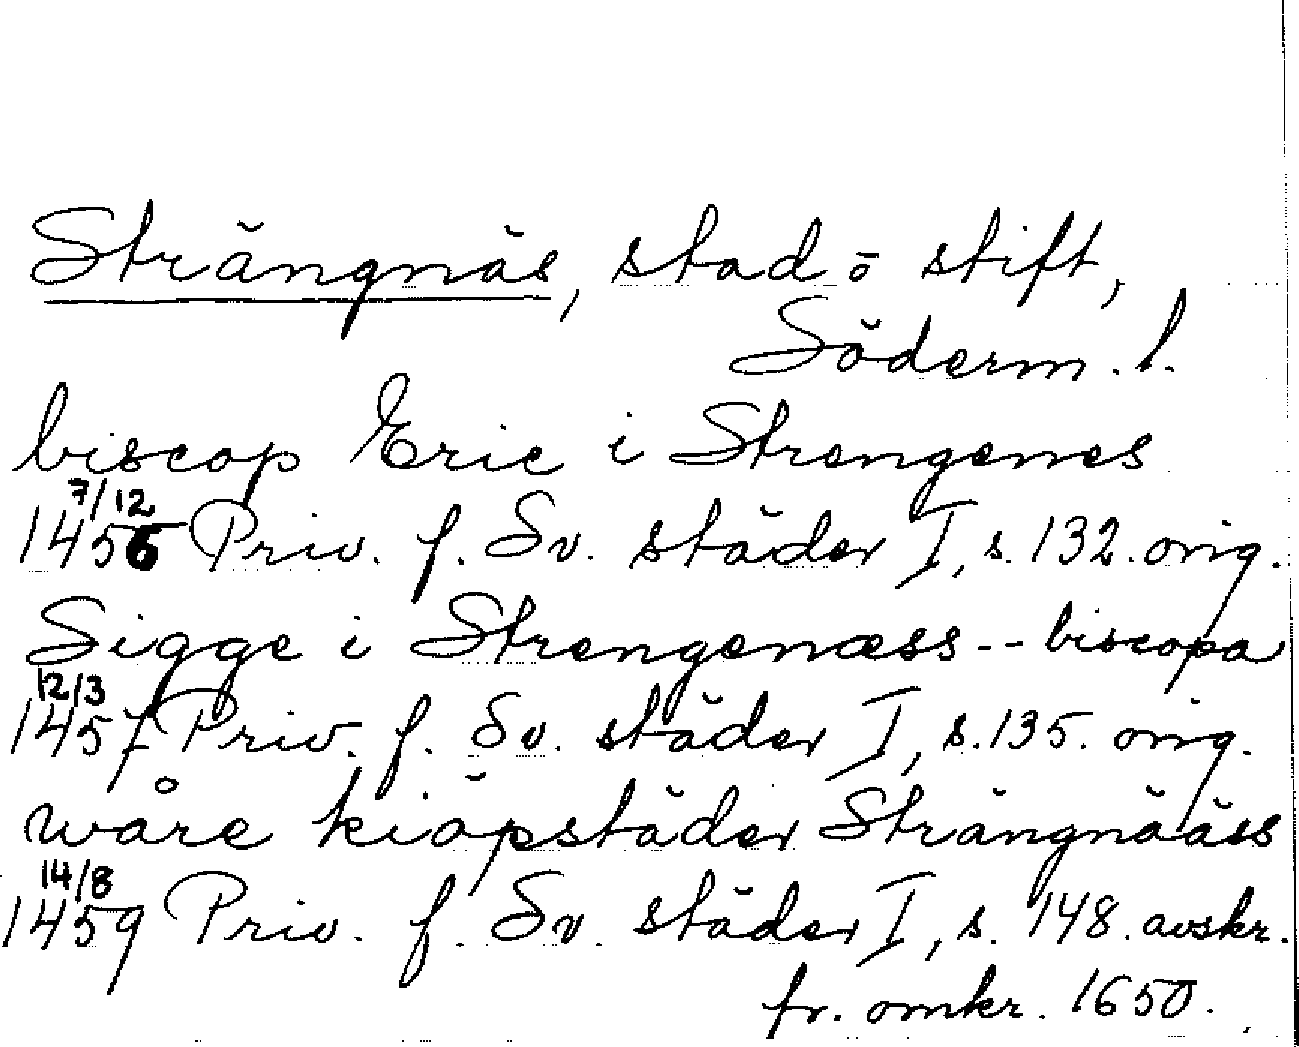 Strängnäs, stad o stift,
Söderm. l.
biscop Eric i Strengenes
7/12
1456 Priv. f. Sv. städer I, s. 132. orig.
Sigge i Strengenæss -- biscopa
12/3
1457 Priv. f. Sv. städer I, s. 135. orig.
wåre kiöpstäder Strängnääss
14/8
1459 Priv. f. Sv. städer I, s. 148. avskr.
fr. omkr. 1650.